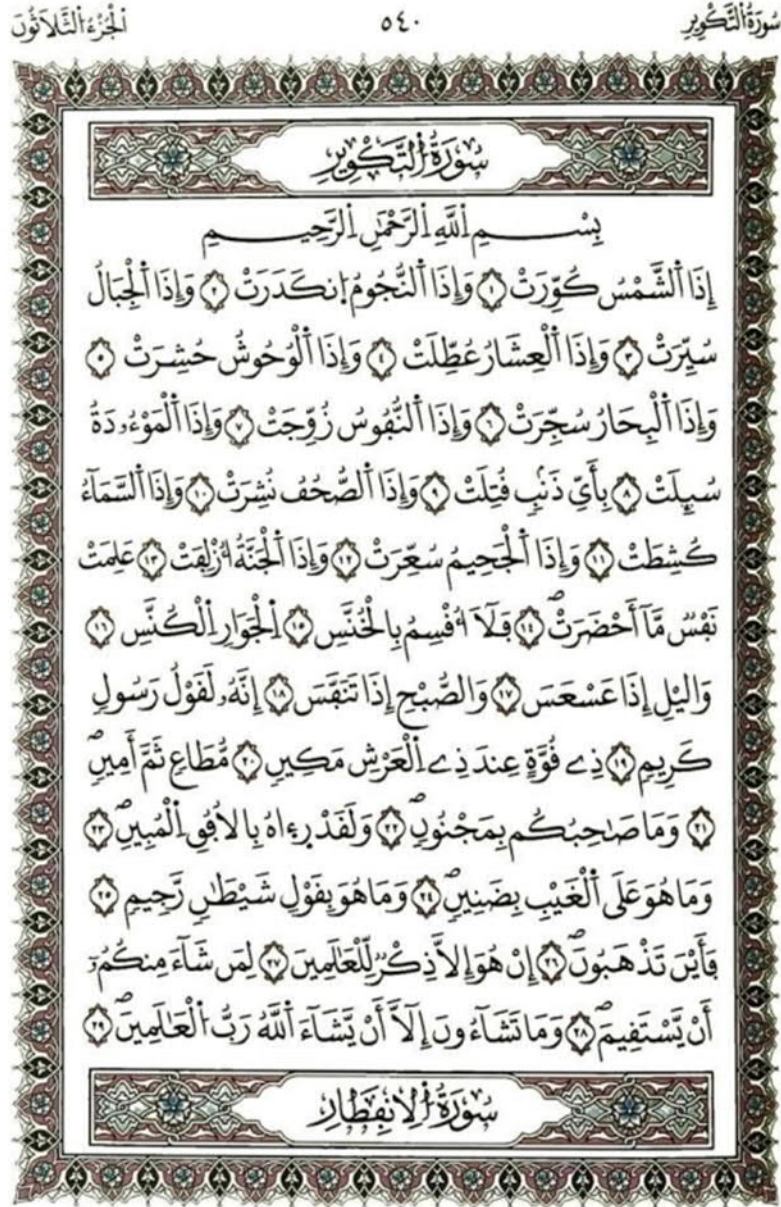 سُورَةُ التَّكْوِيرِ ٥٤٠ الْجُزْءُ الثَّلَاثُونَ
سُورَةُ التَّكْوِيرِ
بِسْمِ اللَّهِ الرَّحْمَٰنِ الرَّحِيمِ
إِذَا اَ۬لشَّمْسُ كُوِّرَتْ ١ وَإِذَا اَ۬لنُّجُومُ اُ۪نكَدَرَتْ ٢ وَإِذَا اَ۬لْجِبَالُ
سُيِّرَتْ ٣ وَإِذَا اَ۬لْعِشَارُ عُطِّلَتْ ٤ وَإِذَا اَ۬لْوُحُوشُ حُشِرَتْ ٥
وَإِذَا اَ۬لْبِحَارُ سُجِّرَتْ ٦ وَإِذَا اَ۬لنُّفُوسُ زُوِّجَتْ ٧ وَإِذَا اَ۬لْمَوْءُۥدَةُ
سُئِلَتْ ٨ بِأَيِّ ذَنۢبٖ قُتِلَتْ ٩ وَإِذَا اَ۬لصُّحُفُ نُشِرَتْ ١٠ وَإِذَا اَ۬لسَّمَآءُ
كُشِطَتْ ١١ وَإِذَا اَ۬لْجَحِيمُ سُعِّرَتْ ١٢ وَإِذَا اَ۬لْجَنَّةُ أُزْلِفَتْ ١٣ عَلِمَتْ
نَفْسٞ مَّآ أَحْضَرَتْۖ ١٤ فَلَآ أُقْسِمُ بِالْخُنَّسِ ١٥ اِ۬لْجَوَارِ اِ۬لْكُنَّسِ ١٦
وَاليْلِ إِذَا عَسْعَسَ ١٧ وَالصُّبْحِ إِذَا تَنَفَّسَ ١٨ إِنَّهُۥ لَقَوْلُ رَسُولٖ
كَرِيمٖ ١٩ ذِے قُوَّةٍ عِندَ ذِے اِ۬لْعَرْشِ مَكِينٖ ٢٠ مُّطَاعٖ ثَمَّ أَمِينٖۖ
٢١ وَمَا صَٰحِبُكُم بِمَجْنُونٖۖ ٢٢ وَلَقَدْ رِء۪اهُ بِالُافُقِ اِ۬لْمُبِينِۖ ٢٣
وَمَا هُوَ عَلَى اَ۬لْغَيْبِ بِضَنِينٖۖ ٢٤ وَمَا هُوَ بِقَوْلِ شَيْطَٰنٖ رَّجِيمٖ ٢٥
فَأَيْنَ تَذْهَبُونَۖ ٢٦ إِنْ هُوَ إِلَّا ذِكْرٞ لِّلْعَٰلَمِينَ ٢٧ لِمَن شَآءَ مِنكُمُۥٓ
أَنْ يَّسْتَقِيمَۖ ٢٨ وَمَا تَشَآءُونَ إِلَّآ أَنْ يَّشَآءَ اَ۬للَّهُ رَبُّ اُ۬لْعَٰلَمِينَۖ ٢٩
سُورَةُ الِانفِطَارِ